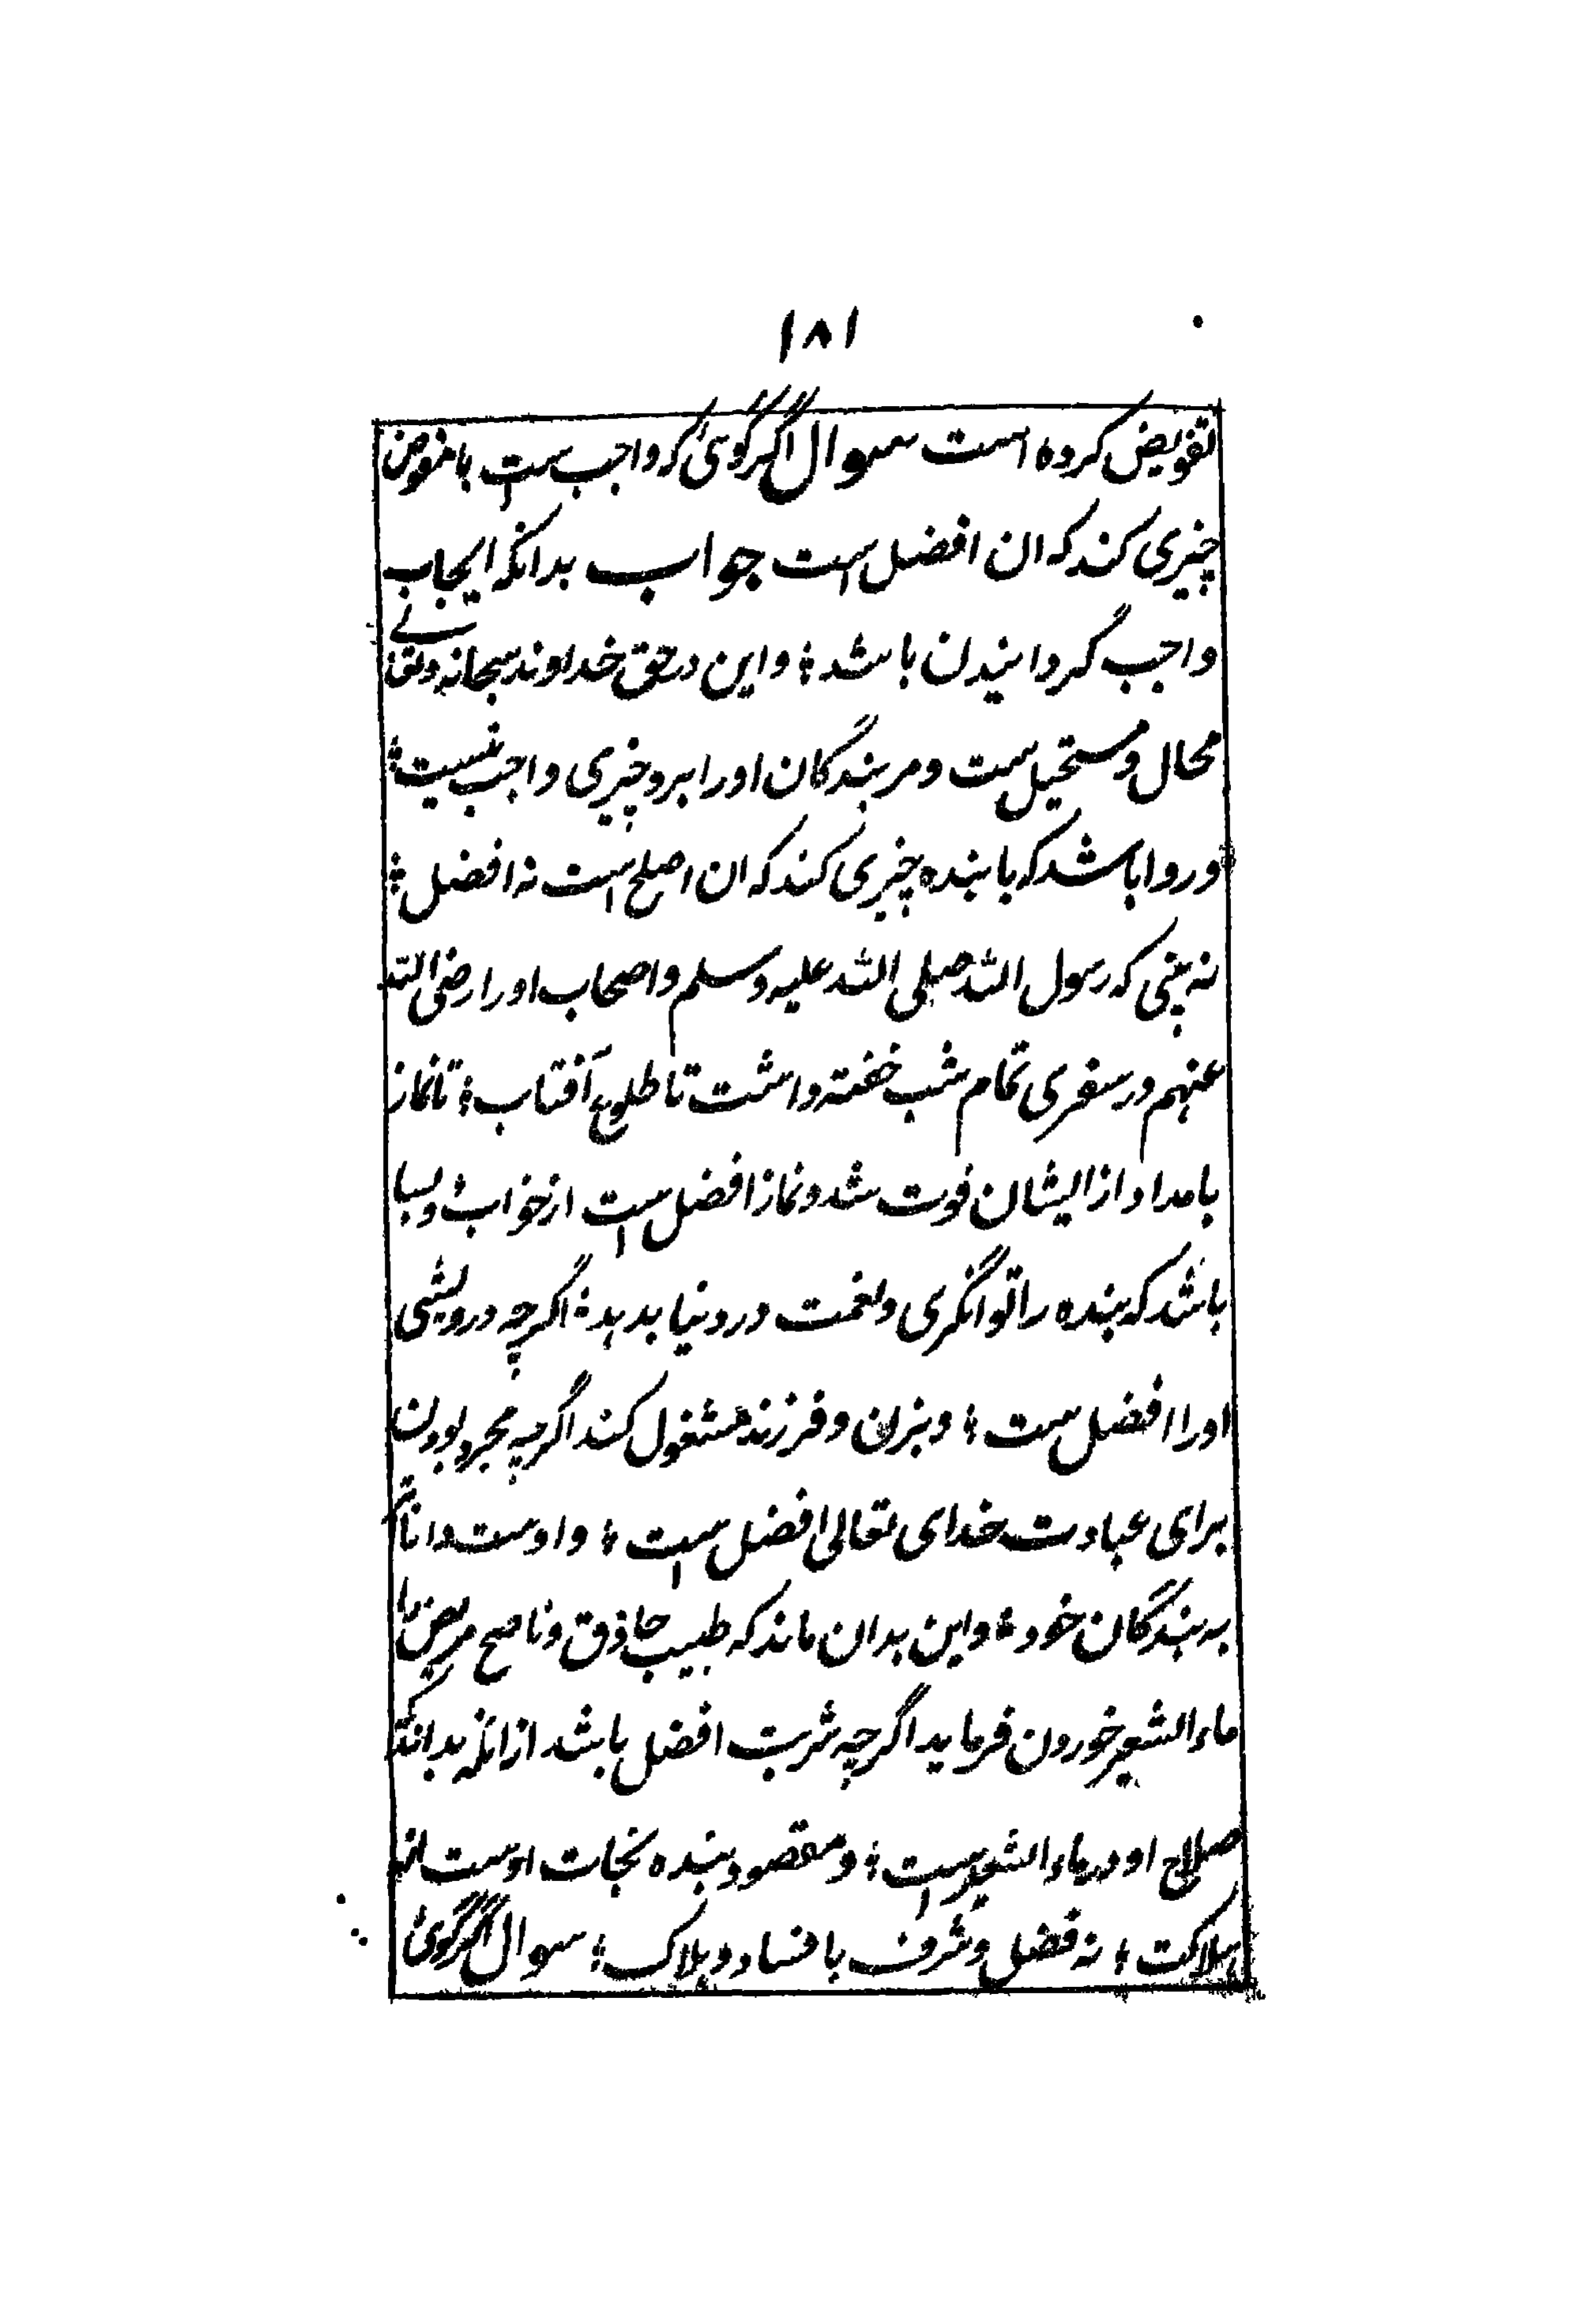 ١٨١
تفویض کرده است سوال اگر گوئی که واجب ست با مفوض
چیزی کند که ان افضل است جواب بدانکه ایجاب
واجب گردانیدن باشد؛ واین در حق خداوند سبحانه وتعالے
محال ومستحیل ست ومر بندگان اورا برو چیزی واجب نیست؛
وروا باشد که با بنده چیزی کند که ان اصلح است نه افضل؛
نه بینی که رسول الله صلی الله علیه وسلم واصحاب اورا رضی الله
عنهم در سفری تمام شب خفته داشت تا طلوع آفتاب؛ تا نماز
بامداد از ایشان فوت شد ونماز افضل ست از خواب؛ وبسا
باشد که بنده را توانگری ونعمت در دنیا بدهد؛ اگرچه درویشی
اورا افضل ست؛ وبزن وفرزند مشغول کند اگرچه مجرد بودن
برای عبادت خدای تعالی افضل ست؛ واوست داناتر
به بندگان خود؛ واین بدان ماند که طبیب حاذق وناصح مریض را
ماء الشعیر خوردن فرماید اگرچه شربت افضل باشد ازانکه بداند که
صلاح او در ماء الشعیر ست؛ ومقصود بنده نجات اوست از
هلاکت؛ نه فضل وشرف با فساد وهلاک؛ سوال اگر گوئی